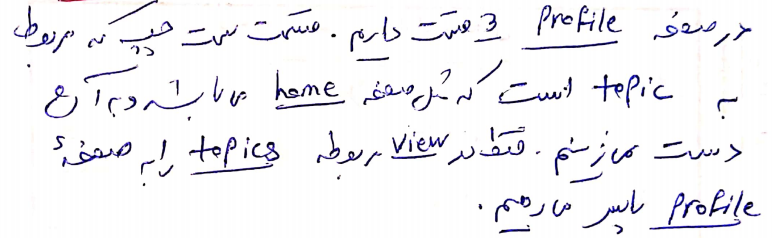 در صفحه Profile 3 قسمت داریم. قسمت سمت چپ که مربوط
به topic است که مثل صفحه home می باشد و به آن
دست نمی زنیم. فقط در view مربوطه topics را به صفحهٔ
Profile پاس می دهیم.